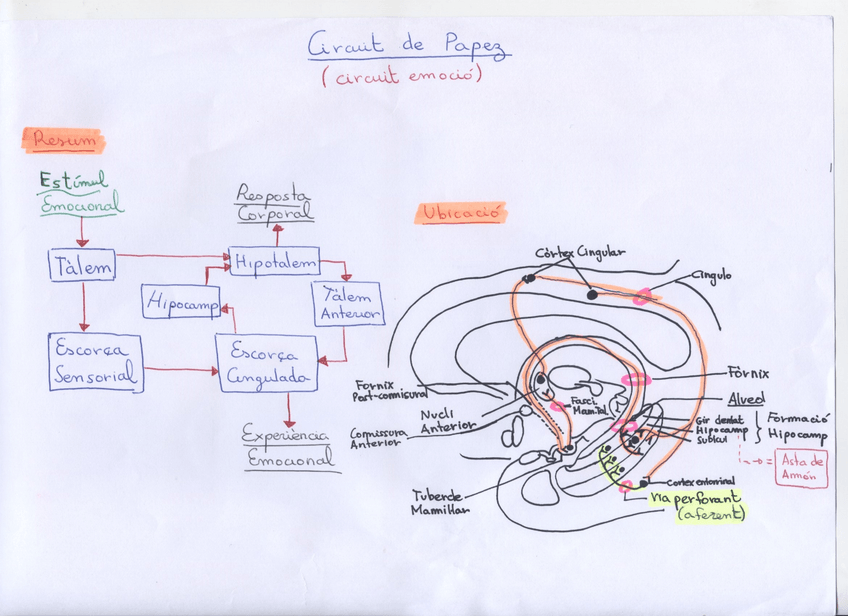 Circuit de Papez
(circuit emoció)
Resum
Estímul
Emocional
Resposta
Corporal
Tàlem
Hipotàlem
Hipocamp
Tàlem
Anterior
Escorça
Sensorial
Escorça
Cingulada
Experiència
Emocional
Ubicació
Còrtex Cingular
Cíngulo
Fòrnix
Fòrnix
Post-comisural
Fasci.
Mam.Tal.
Alved
Nucli
Anterior
Comissura
Anterior
Gir dentat
Hipocamp
Subicul
Formació
Hipocamp
Asta de
Amón
Tubercle
Mamillar
Cortex entorrinal
Via perforant
(aferent)